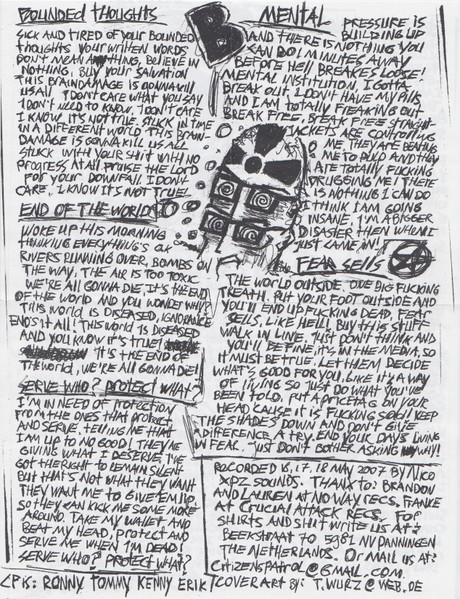 BOUNDED THOUGHTS
SICK AND TIRED OF YOUR BOUNDED
THOUGHTS YOUR WRITTEN WORDS
DON'T MEAN THING, BELIEVE IN
NOTHING, BUY YOUR SALVATION
THIS BRAINDAMAGE IS GONNA KILL
US ALL I DON'T CARE WHAT YOU SAY
I DON'T NEED TO KNOW, I DON'T CARE
I KNOW IT'S NOT TRUE. STUCK IN TIME
IN A DIFFERENT WORLD THIS BRAIN
DAMAGE IS GONNA KILL US ALL
STUCK WITH YOUR SHIT WITH NO
PROGRESS AT ALL PRAISE THE LORD
FOR YOUR DOWNFALL I DON'T
CARE, I KNOW IT'S NOT TRUE!
END OF THE WORLD
WOKE UP THIS MORNING
THINKING EVERYTHING'S OK
RIVERS RUNNING OVER, BOMBS ON
THE WAY, THE AIR IS TOO TOXIC
WE'RE ALL GONNA DIE, IT'S THE END
OF THE WORLD AND YOU WONDER WHY?
THIS WORLD IS DISEASED, IGNORANCE
ENDS IT ALL! THIS WORLD IS DISEASED
AND YOU KNOW IT'S TRUE!
IT'S THE END OF
THE WORLD, WE'RE ALL GONNA DIE!
SERVE WHO? PROTECT WHAT?
I'M IN NEED OF PROTECTION
FROM THE ONES THAT PROTECT
AND SERVE, TELLING ME THAT
I AM UP TO NO GOOD! THEY'RE
GIVING WHAT I DESERVE, I'VE
GOT THE RIGHT TO REMAIN SILENT
BUT THAT'S NOT WHAT THEY WANT
THEY WANT ME TO GIVE 'EM LIP,
SO THEY CAN KICK ME SOME MORE
AROUND. TAKE MY WALLET AND
BEAT MY HEAD, PROTECT AND
SERVE ME WHEN I'M DEAD!
SERVE WHO? PROTECT WHAT?
B
MENTAL
PRESSURE IS
BUILDING UP
AND THERE IS NOTHING YOU
CAN DO! MINUTES AWAY
BEFORE HELL BREAKES LOOSE!
MENTAL INSTITUTION, I GOTTA
BREAK OUT, I DON'T HAVE MY PILLS
AND I AM TOTALLY FREAKING OUT
BREAK FREE, BREAK FREE STRAIGHT-
JACKETS ARE CONTROLLING
ME THEY ARE BEATING
ME TO PULP AND THEY
ARE TOTALLY FUCKING
DRUGGING ME! THERE
IS NOTHING I CAN DO
I THINK I AM GOING
INSANE, I'M A BIGGER
DISASTER THEN WHEN I
JUST CAME IN!
FEAR SELLS
THE WORLD OUTSIDE ONE BIG FUCKING
TREATH. PUT YOUR FOOT OUTSIDE AND
YOU'LL END UP FUCKING DEAD, FEAR
SELLS, LIKE HELL! BUY THIS STUFF
WALK IN LINE, JUST DON'T THINK AND
YOU'LL BE FINE, IT'S IN THE MEDIA, SO
IT MUST BE TRUE, LET THEM DECIDE
WHAT'S GOOD FOR YOU, LIKE IT'S A WAY
OF LIVING SO JUST DO WHAT YOU'VE
BEEN TOLD, PUT A PRICETAG ON YOUR
HEAD CAUSE IT IS FUCKING SOLD! KEEP
THE SHADES DOWN AND DON'T GIVE
A DIFFERENCE A TRY, END YOUR DAYS LIVING
IN FEAR, JUST DON'T BOTHER ASKING WHY!
RECORDED 16, 17, 18 MAY 2007 BY NICO
XPZ SOUNDS. THANX TO: BRANDON
AND LAUREN AT NO WAY RECS, FRANKE
AT CRUCIAL ATTACK RECS. FOR
SHIRTS AND SHIT WRITE US AT:
BEEKSTRAAT 10 5981 NV PANNINGEN
THE NETHERLANDS. OR MAIL US AT:
CITIZENSPATROL@GMAIL.COM
CP IS: RONNY TOMMY KENNY ERIK COVER ART BY: T.WURZ@WEB.DE